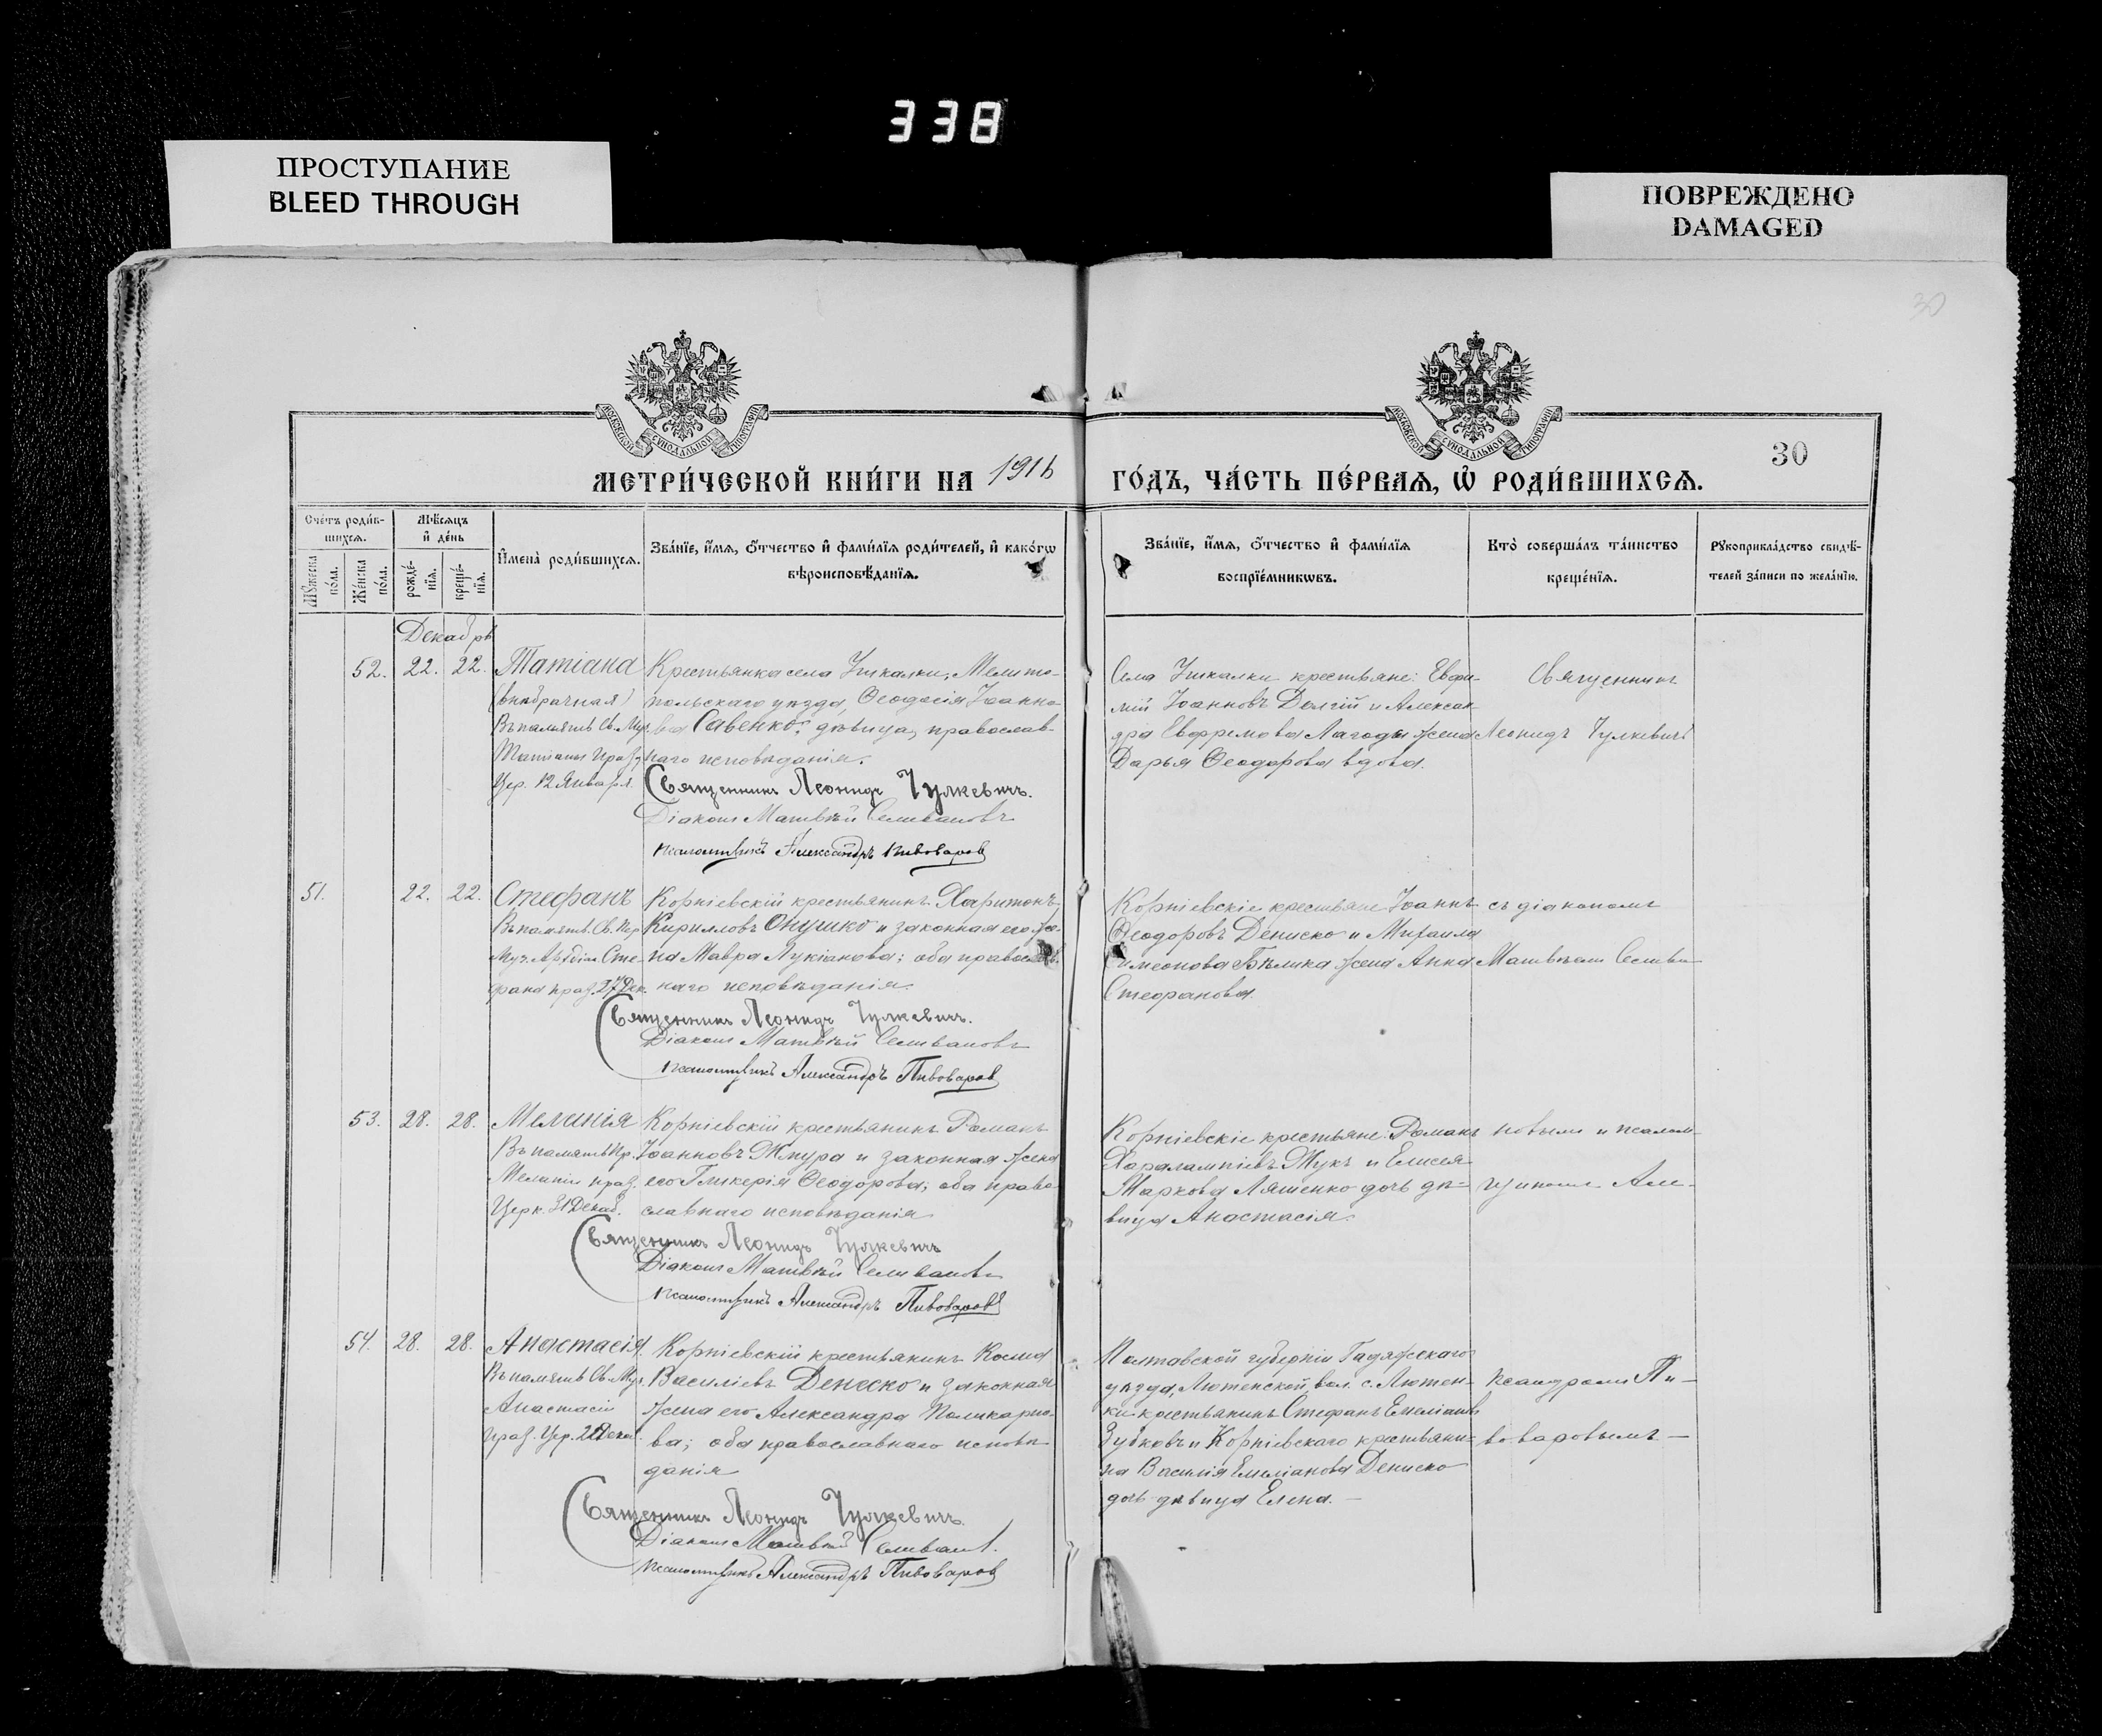 338
ПРОСТУПАНИЕ
BLEED THROUGH
ПОВРЕЖДЕНО
DAMAGED
30
МОСКОВСКОЙ СѴНОДАЛЬНОЙ ТИПОГРАФІИ
МОСКОВСКОЙ СѴНОДАЛЬНОЙ ТИПОГРАФІИ
30
МЕТРИ́ЧЕСКОЙ КНИ́ГИ НА 1916 ГО́ДЪ, ЧА́СТЬ ПЕ́РВАѦ, Ѡ҆ РОДИ́ВШИХСѦ.
Сче́тъ роди́в-
шихсѧ.
Мꙋ́жеска по́ла.
Же́нска по́ла.
Мѣ́сѧцъ
и҆ де́нь
рожде́-нїѧ.
креще́-нїѧ.
И҆мена̀ роди́вшихсѧ.
Зва́нїе, и҆́мѧ, ѻ҆́тчество и҆ фами́лїѧ роди́телей, и҆ како́гѡ
вѣроисповѣ́данїѧ.
Зва́нїе, и҆́мѧ, ѻ҆́тчество и҆ фами́лїѧ
воспрїе́мникѡвъ.
Кто̀ соверша́лъ та́инство
креще́нїѧ.
Рꙋкоприкла́дство свидѣ́-
телей за́писи по жела́нїю.
Декабрь
52. 22. 22.
Татіана
(внѣбрачная)
Въ память Св. Муч.
Татіаны праз.
Цер. 12 Января.
Крестьянка села Ушкалки, Мелито-
польскаго уѣзда, Ѳеодосія Іоанно-
ва Савенко, дѣвица, православ-
наго исповѣданія.
Священникъ Леонидъ Чулкевичъ.
Діаконъ Матвѣй Селивановъ
Псаломщикъ Александръ Пивоваров
Села Ушкалки крестьяне: Евфи-
мій Іоанновъ Долгій и Алексан-
дра Евфремова Лагоды жена
Дарья Ѳеодорова вдова.
Священникъ
Леонидъ Чулкевичъ
51. 22. 22.
Стефанъ
Въ память Св. Пер.
Муч. Архидіак. Сте-
фана праз. 27 Дек.
Корніевскій крестьянинъ Харитонъ
Кирилловъ Онушко и законная его же-
на Мавра Лукіанова; оба православ-
наго исповѣданія.
Священникъ Леонидъ Чулкевичъ.
Діаконъ Матвѣй Селивановъ
Псаломщикъ Александръ Пивоваров
Корніевскіе крестьяне Іоаннъ
Ѳеодоровъ Дениско и Михаила
Симеонова Бѣлика жена Анна
Стефанова.
съ діакономъ
Матвѣемъ Селива-
53. 28. 28.
Меланія
Въ память Пр.
Меланіи праз.
Церк. 31 Декаб.
Корніевскій крестьянинъ Романъ
Іоанновъ Жмура и законная жена
его Гликерія Ѳеодорова; оба право-
славнаго исповѣданія
Священникъ Леонидъ Чулкевичъ
Діаконъ Матвѣй Селивановъ
Псаломщикъ Александръ Пивоваровъ
Корніевскіе крестьяне: Романъ
Харалампіевъ Жукъ и Елисея
Маркова Ляшенко дочь дѣ-
вица Анастасія.
новымъ и псалом-
щикомъ Але-
54. 28. 28.
Анастасія
Въ память Св. Муч.
Анастасіи
праз. Цер. 22 Декаб.
Корніевскій крестьянинъ Косма
Василіевъ Денеско и законная
жена его Александра Поликарпо-
ва; оба православнаго исповѣ-
данія
Священникъ Леонидъ Чулкевичъ.
Діаконъ Матвѣй Селиванов.
Псаломщикъ Александръ Пивоваров
Полтавской губерніи Гадяжскаго
уѣзда, Лютенской вол. с. Лютен-
ки крестьянинъ Стефанъ Емеліановъ
Зубковъ и Корніевскаго крестьяни-
на Василія Емеліанова Дениско
дочь дѣвица Елена. —
ксандромъ Пи-
воваровымъ —